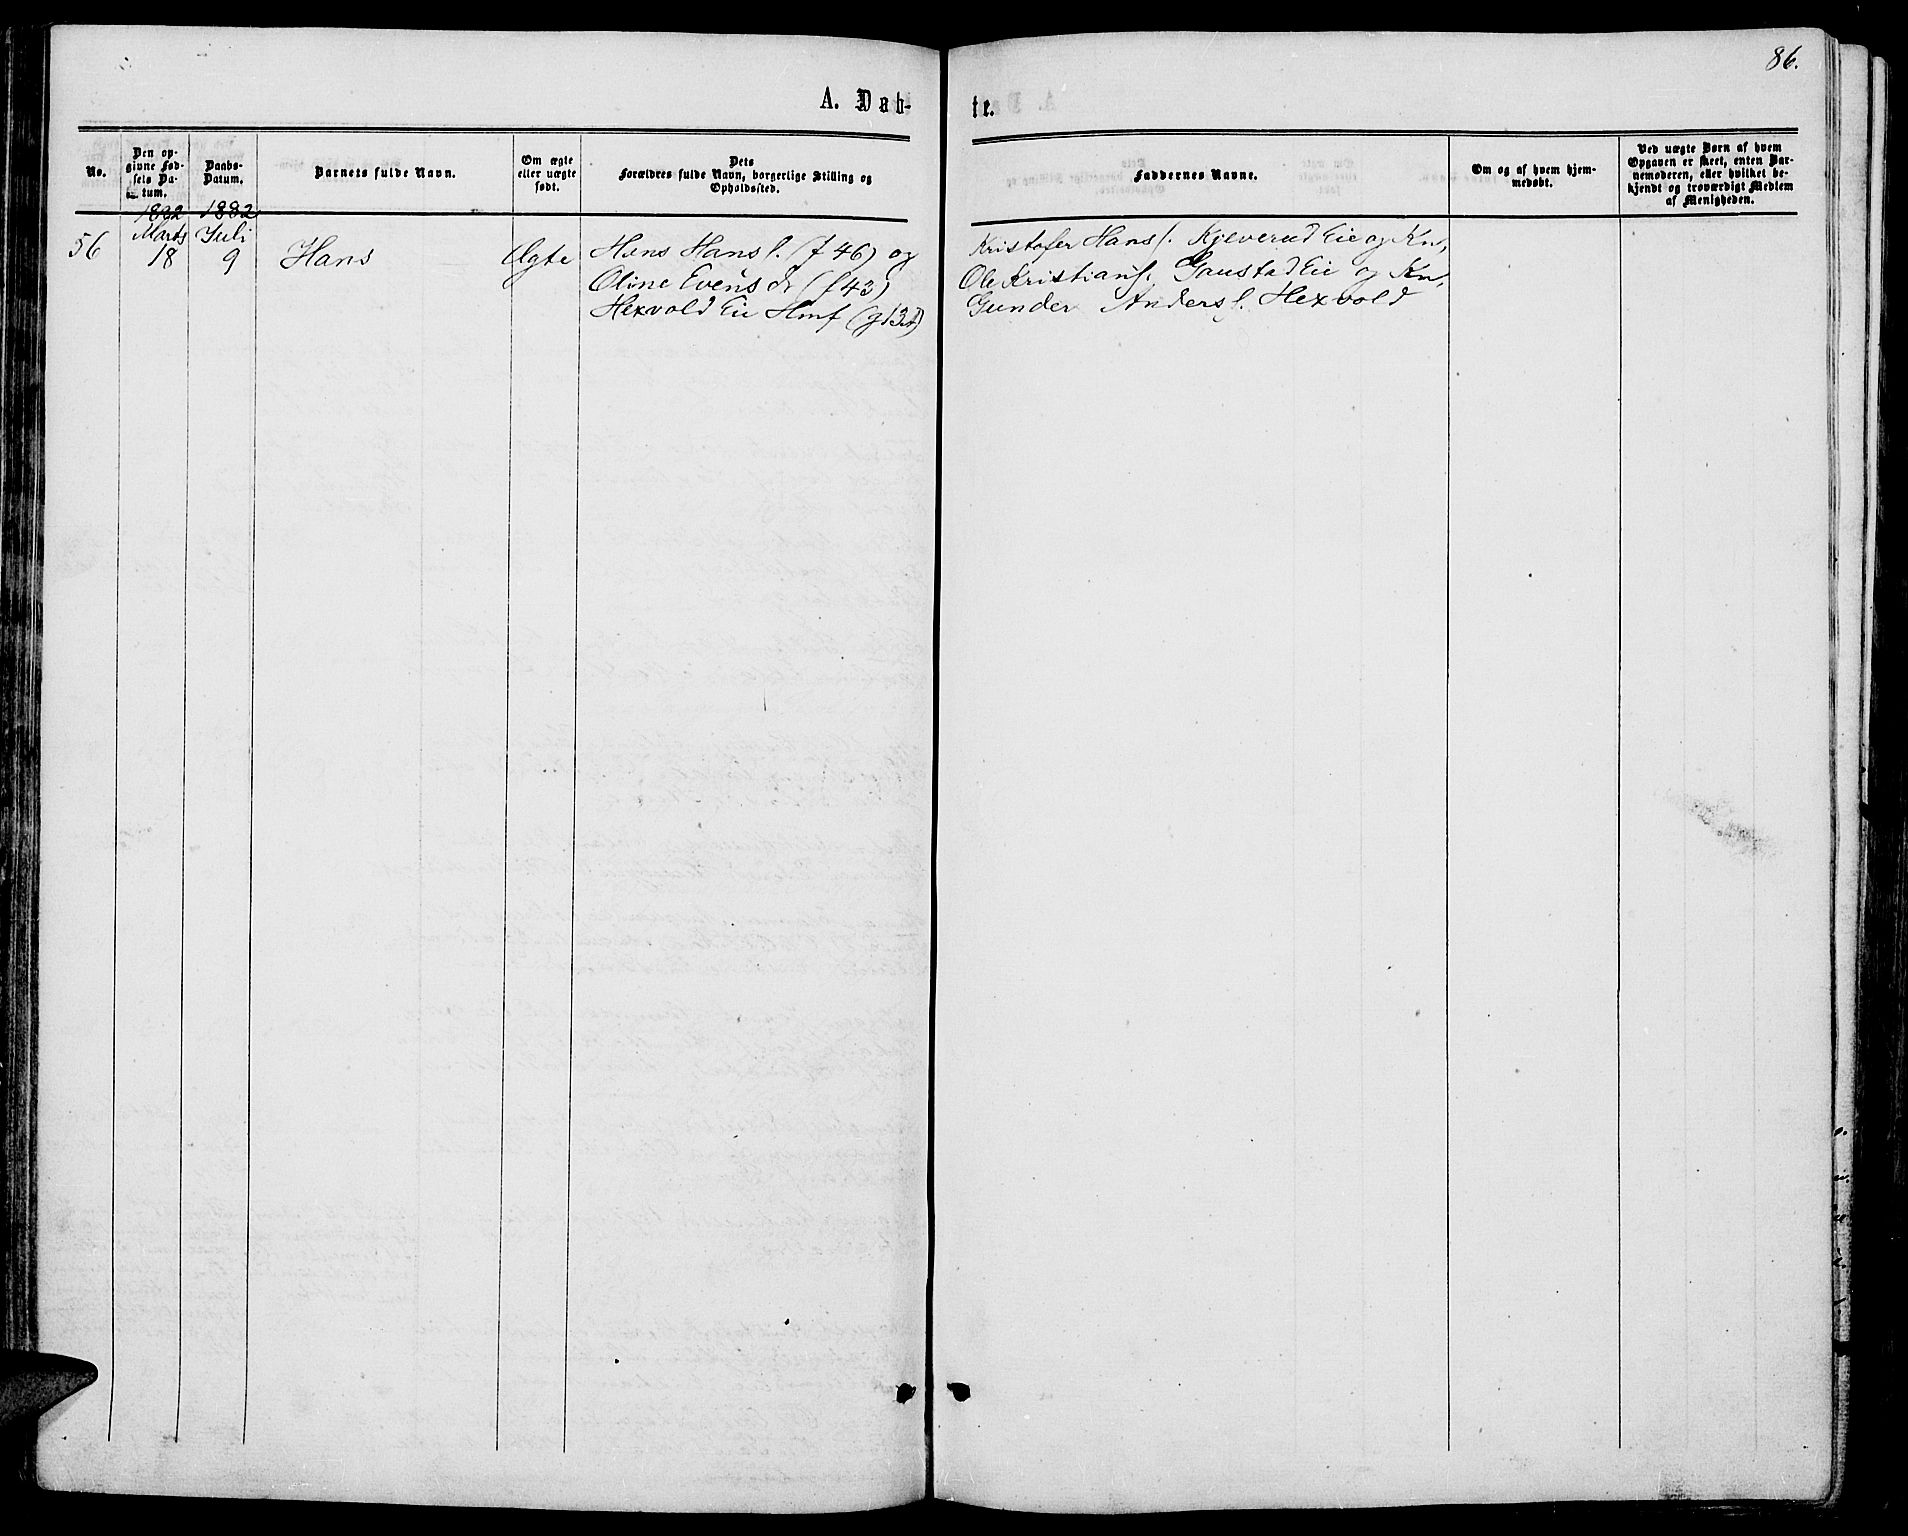 86.
A. Døb-
te.
No.
Den op-
givne Fød-
sels Da-
tum.
Daabs-
Datum.
Barnets fulde Navn.
Om ægte
eller uægte
født.
Dets
Forældres fulde Navn, borgerlige Stilling og
Opholdssted.
Faddernes Navne.
Om og af hvem hjem-
medøbt.
Ved uægte Børn af hvem
Opgaven er skeet, enten Bar-
nemoderen, eller hvilket be-
kjendt og troværdigt Medlem
af Menigheden.
1882 1882
Marts Juli
56 18 9 Hans Ægte Hans Hans f. (f 46) og
Oline Evens dr (f 43)
Hexvold Eie Hmf
Kristofer Hans f. Kjeverud Eie og Kn,
Ole Kristians f. Gaustad Eie og Kn,
Gunder Anders f. Hexvold